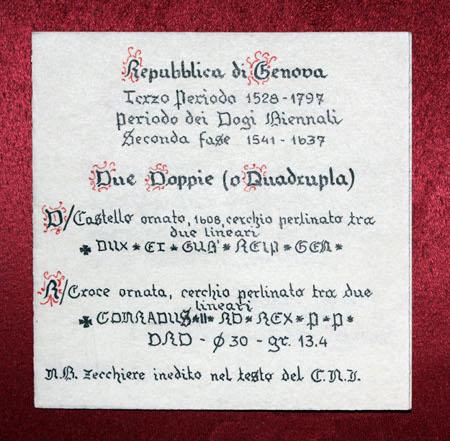 Repubblica di Genova
Terzo Periodo 1528-1797
periodo dei Dogi Biennali
Seconda fase 1541-1637
Due Doppie (o Quadrupla)
D/Castello ornato, 1608, cerchio perlinato tra
due lineari
✠ DUX * ET * GUB' * REIP * GEN *
R/Croce ornata, cerchio perlinato tra due
lineari
✠ CONRADUS * II * RO * REX * P * P *
ORO - Ø 30 - gr. 13.4
N.B. Zecchiere inedito nel testo del C.N.I.